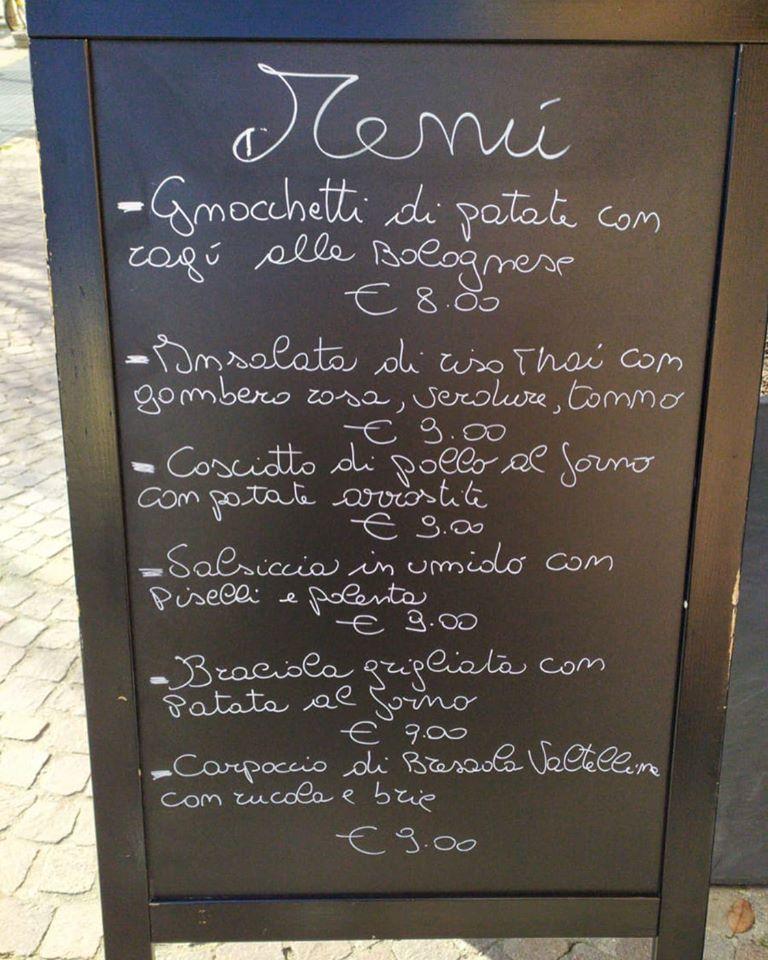 Menú
- Gnocchetti di patate con
ragú alla Bolognese
€ 8.00
- Insalata di riso Thai con
gambero rosa, verdure, tonno
€ 9.00
- Cosciotto di pollo al forno
con patate arrostite
€ 9.00
- Salsiccia in umido con
Piselli e polenta
€ 9.00
- Braciola grigliata con
patata al forno
€ 9.00
- Carpaccio di Bresaola Valtellina
con rucola e brie
€ 9.00